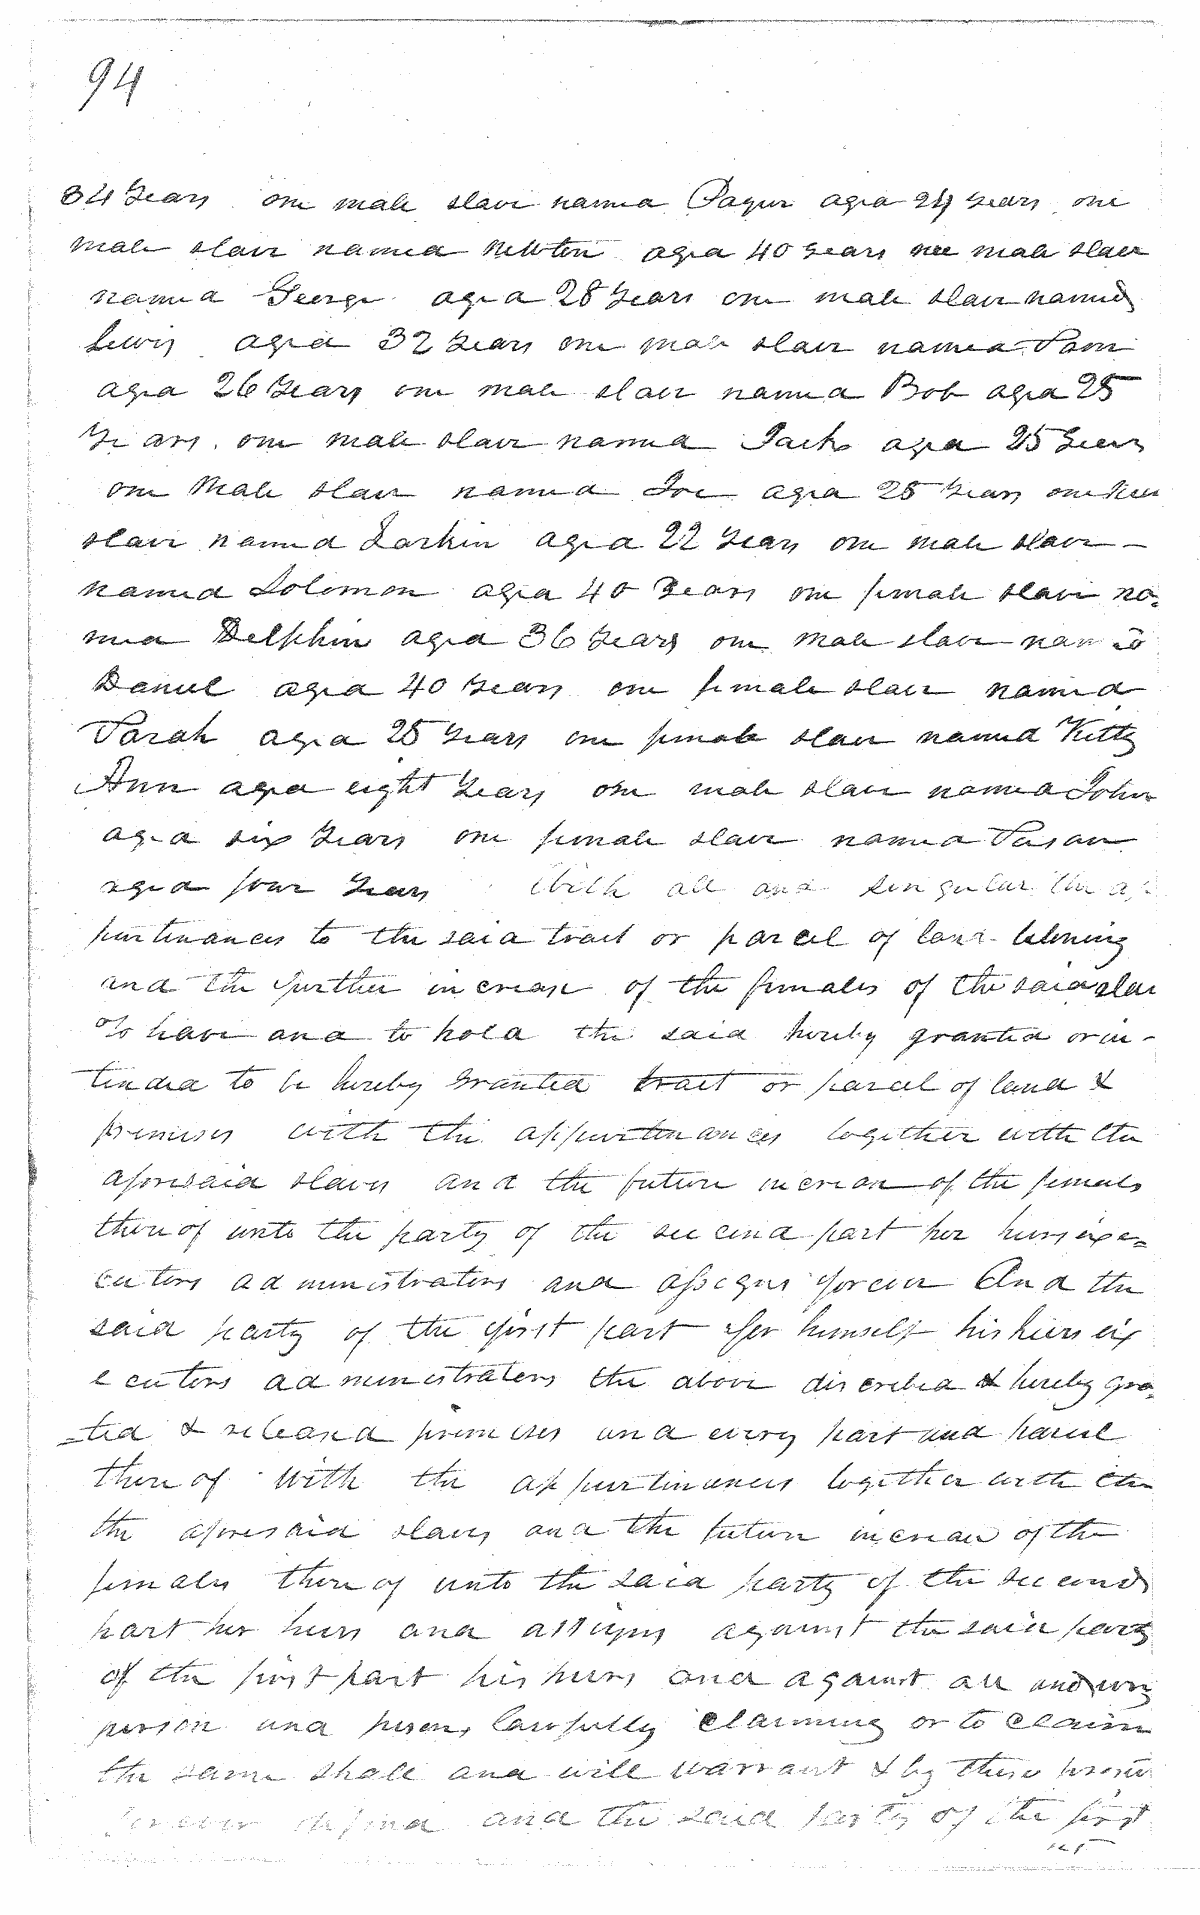 94
34 Years one male slave named Payur aged 24 years one
male slave named Newton aged 40 years one male slave
named George aged 28 Years one male slave named
Lewis aged 32 Years one male slave named Sam
aged 26 Years one male slave named Bob aged 25
Years. one male slave named Jack aged 25 Years
one Male slave named Joe aged 25 Years one
slave named Larkin aged 22 Years one male slave —
named Solomon aged 40 Years one female slave na=
med Delphin aged 36 Years one male slave named
Daniel aged 40 Years one female slave named
Sarah aged 25 Years one female slave named Kitty
Ann aged eight Years one male slave named John
aged six Years one female slave named Susan
aged four Years With all and singular the ap
purtinances to the said tract or parcel of land beloning
and the further increase of the females of the said slav
To have and to hold the said hereby granted or in-
tended to be hereby granted tract or parcel of land &
premises with the appurtenances together with the
aforesaid slaves and the future increase of the females
thereof unto the party of the second part her heirs exe=
cutors administrators and assigns forever And the
said party of the first part for himself his heirs ex
ecutors administrators the above discribed & hereby gra=
=ted & released premises and every part and parcel
thereof with the appurtinances together with the
the aforesaid slaves and the future increase of the
females thereof unto the said party of the second
part her heirs and assigns against the said party
of the first part his heirs and against all and every
person and persons lawfully claiming or to claim
the same shall and will warrant & by these presents
forever defend and the said party of the first